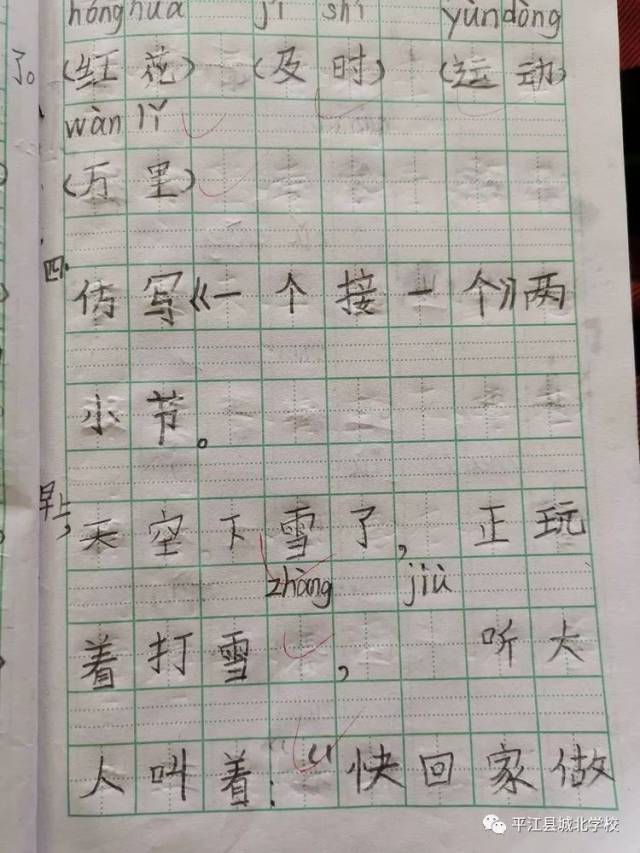 hónghuā jí shí yùndòng
了。(红花) (及时) (运动)
wàn lǐ
(万里)
四、
仿写《一个接一个》两
小节。
早上,天空下雪了,正玩
zhàng jiù
着打雪 , 听大
人叫着:“快回家做
平江县城北学校